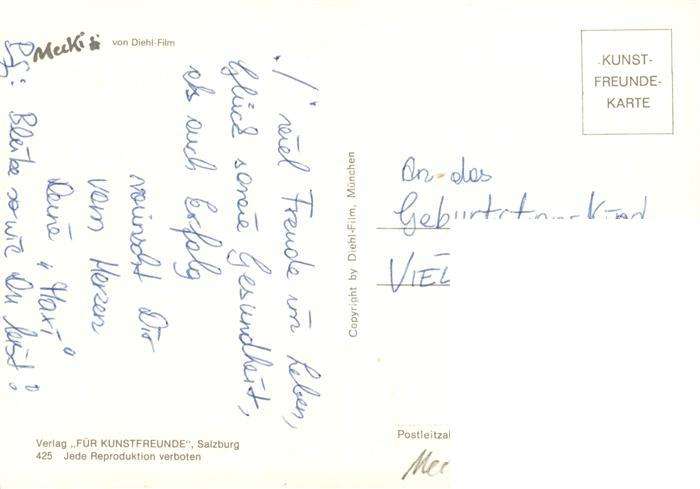 Mecki von Diehl-Film
-KUNST-
FREUNDE-
KARTE
./. viel Freude im Leben,
Glück sowie Gesundheit,
als auch Erfolg
wünscht Dir
vom Herzen
Deine "Maxi"
PS: Bleibe so wie Du bist!
Copyright by Diehl-Film, München
An das
VIEL
Verlag „FÜR KUNSTFREUNDE", Salzburg
425 Jede Reproduktion verboten
Postleitza
Mec